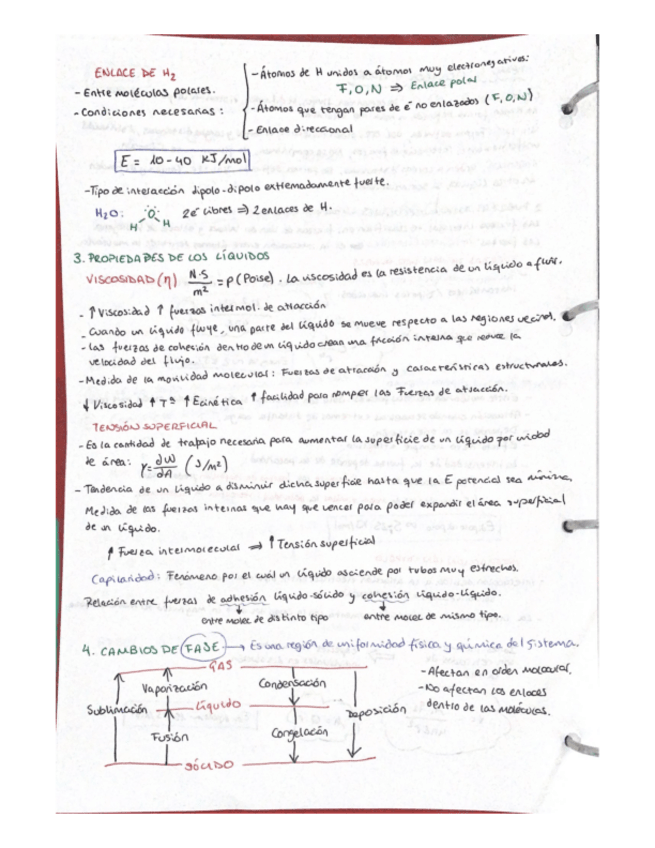 ENLACE DE H₂
- Entre moléculas polares.
- Condiciones necesarias:
- Átomos de H unidos a átomos muy electronegativos:
F, O, N ⇒ Enlace polar
- Átomos que tengan pares de e⁻ no enlazados (F, O, N)
- Enlace direccional
E = 10-40 KJ/mol
- Tipo de interacción dipolo-dipolo extremadamente fuerte.
H₂O: H O H 2e⁻ libres ⇒ 2 enlaces de H.
3. PROPIEDADES DE LOS LÍQUIDOS
VISCOSIDAD (η) N·S/m² = P (Poise). La viscosidad es la resistencia de un líquido a fluir.
- ↑ Viscosidad ↑ fuerzas intermol. de atracción
- Cuando un líquido fluye, una parte del líquido se mueve respecto a las regiones vecinas.
- Las fuerzas de cohesión dentro de un líquido crean una fricción interna que reduce la
velocidad del flujo.
- Medida de la movilidad molecular: Fuerzas de atracción y características estructurales.
↓ Viscosidad ↑ Tª ↑ Ecinética ↑ facilidad para romper las Fuerzas de atracción.
TENSIÓN SUPERFICIAL
- Es la cantidad de trabajo necesaria para aumentar la superficie de un líquido por unidad
de área: γ = dW/dA (J/m²)
- Tendencia de un líquido a disminuir dicha superficie hasta que la E potencial sea mínima,
Medida de las fuerzas internas que hay que vencer para poder expandir el área superficial
de un líquido.
↑ Fuerza intermolecular ⇒ ↑ Tensión superficial
Capilaridad: Fenómeno por el cuál un líquido asciende por tubos muy estrechos.
Relación entre fuerzas de adhesión líquido-sólido y cohesión líquido-líquido.
entre molec de distinto tipo entre molec de mismo tipo.
4. CAMBIOS DE FASE → Es una región de uniformidad física y química del sistema.
GAS
- Afectan en orden molecular.
Vaporización Condensación
- No afectan los enlaces
dentro de las moléculas.
Sublimación Líquido Deposición
Fusión Congelacón
SÓLIDO